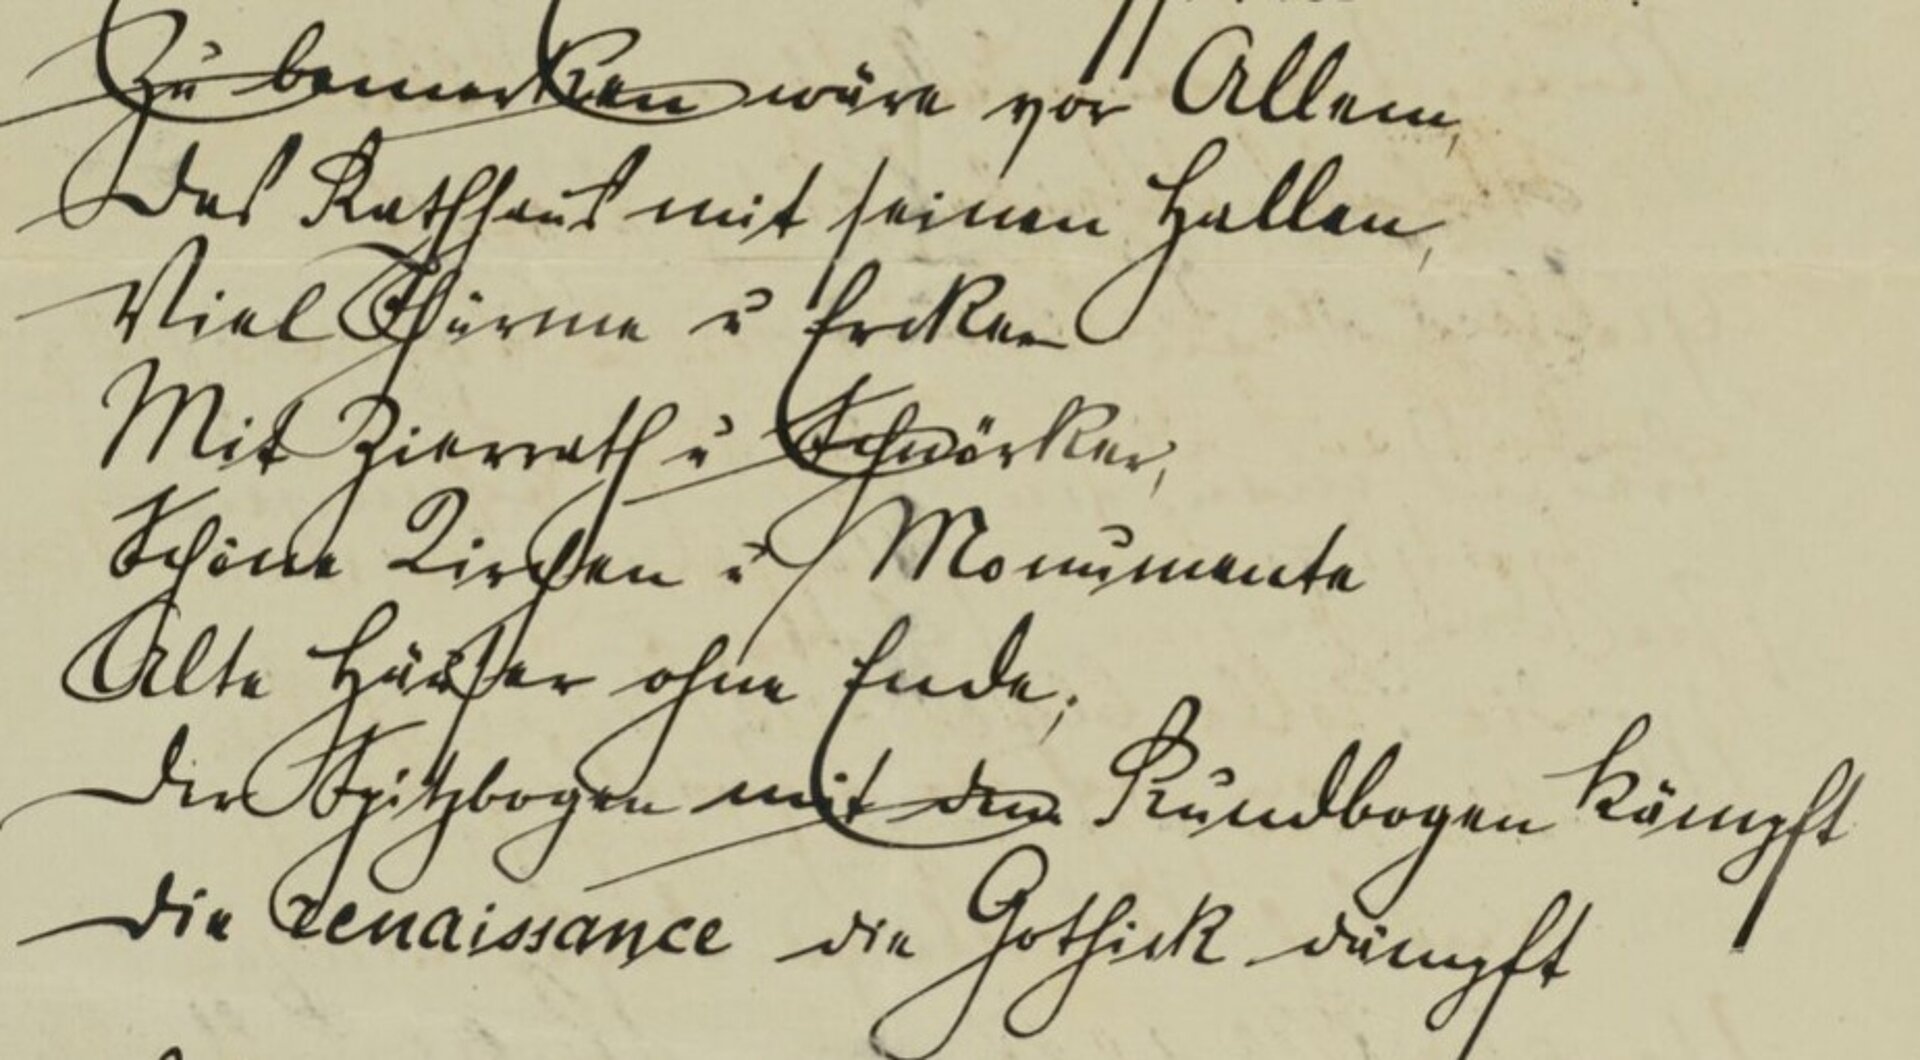 Zu bemerken wäre vor Allem,
Das Rathhaus mit seinen Hallen,
Viel Thürme u Ercker
Mit Zierrath u Schnörker,
Schöne Kirchen u Monumente
Alte Häuser ohne Ende,
Der Spitzbogen mit dem Rundbogen kämpft
Die Renaissance die Gothick dämpft